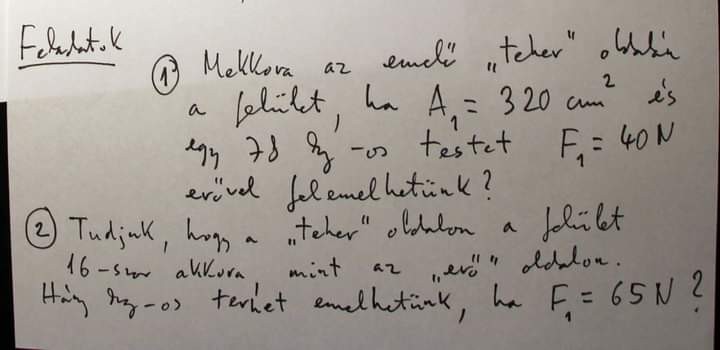 Feladatok
① Mekkora az emelő „teher” oldalán
a felület, ha A₁ = 320 cm² és
egy 78 kg-os testet F₁ = 40 N
erővel felemelhetünk?
② Tudjuk, hogy a „teher” oldalon a felület
16-szor akkora, mint az „erő” oldalon.
Hány kg-os terhet emelhetünk, ha F₁ = 65 N?